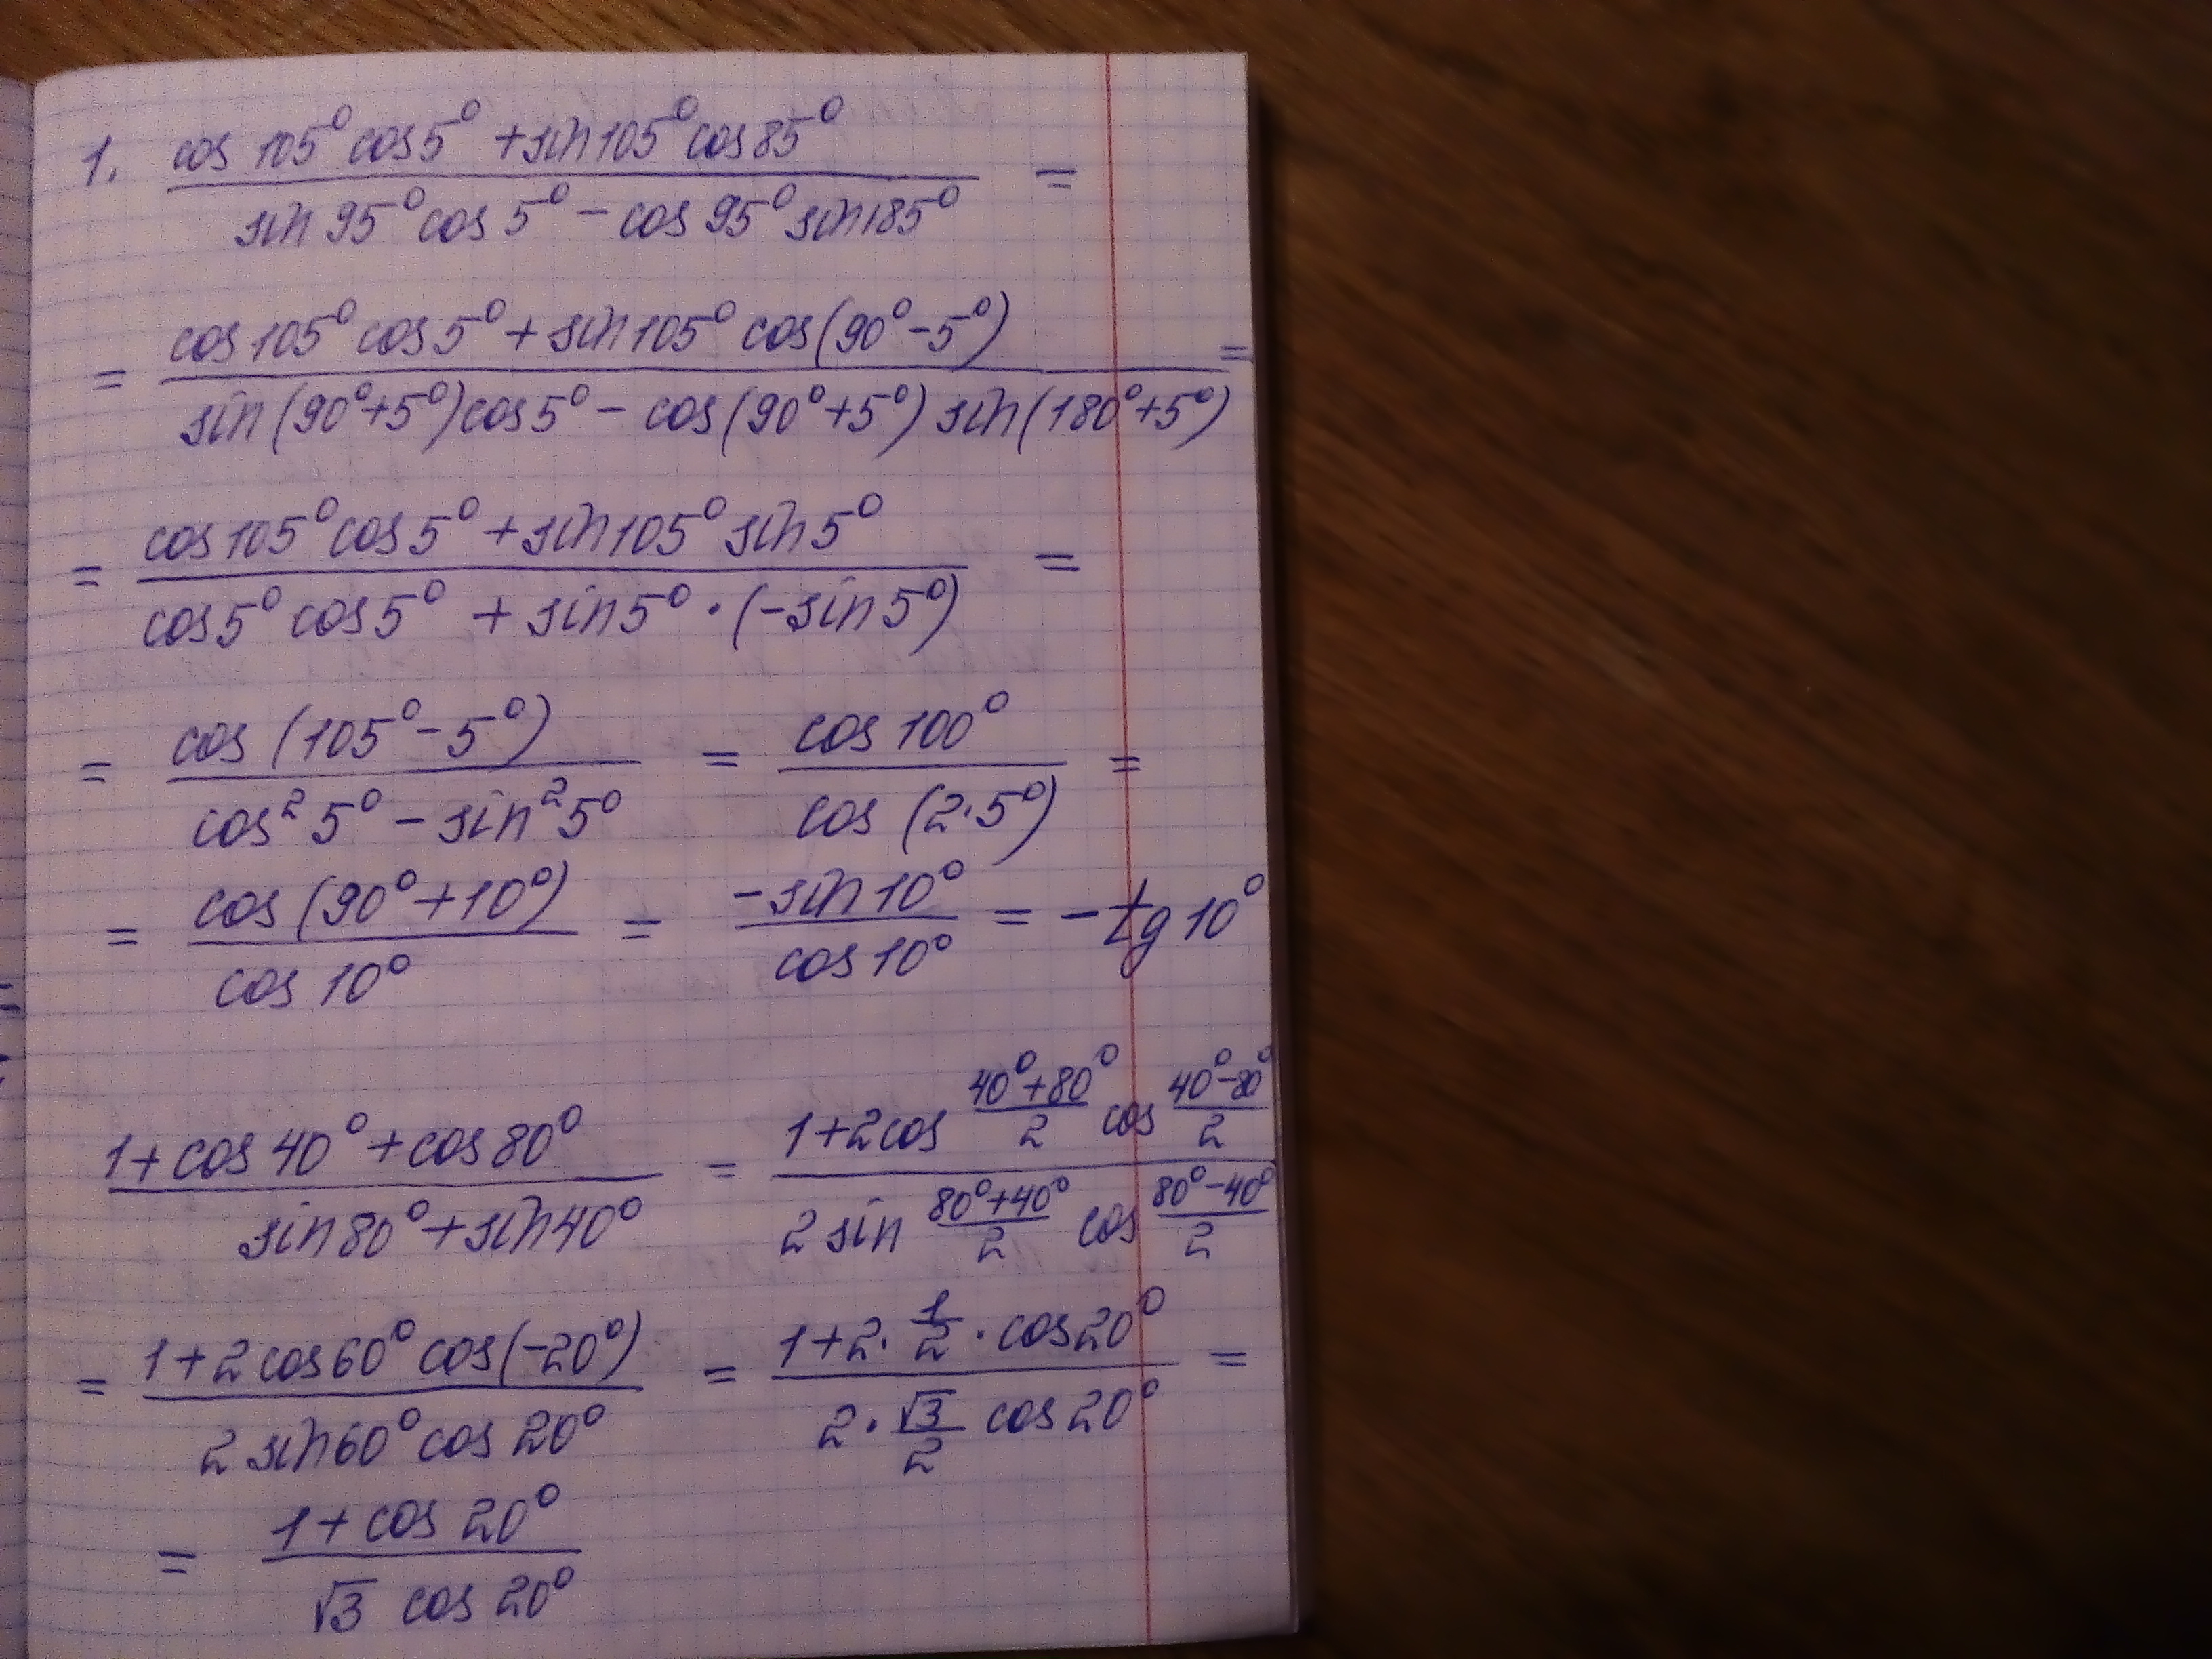 1. (cos 105° cos 5° + sin 105° cos 85°) / (sin 95° cos 5° - cos 95° sin 185°) =
= (cos 105° cos 5° + sin 105° cos(90° - 5°)) / (sin(90° + 5°) cos 5° - cos(90° + 5°) sin(180° + 5°)) =
= (cos 105° cos 5° + sin 105° sin 5°) / (cos 5° cos 5° + sin 5° · (-sin 5°)) =
= cos(105° - 5°) / (cos² 5° - sin² 5°) = cos 100° / cos(2·5°) =
= cos(90° + 10°) / cos 10° = -sin 10° / cos 10° = -tg 10°
(1 + cos 40° + cos 80°) / (sin 80° + sin 40°) = (1 + 2 cos (40° + 80°)/2 cos (40° - 80°)/2) / (2 sin (80° + 40°)/2 cos (80° - 40°)/2)
= (1 + 2 cos 60° cos(-20°)) / (2 sin 60° cos 20°) = (1 + 2 · 1/2 · cos 20°) / (2 · √3/2 cos 20°) =
= (1 + cos 20°) / (√3 cos 20°)